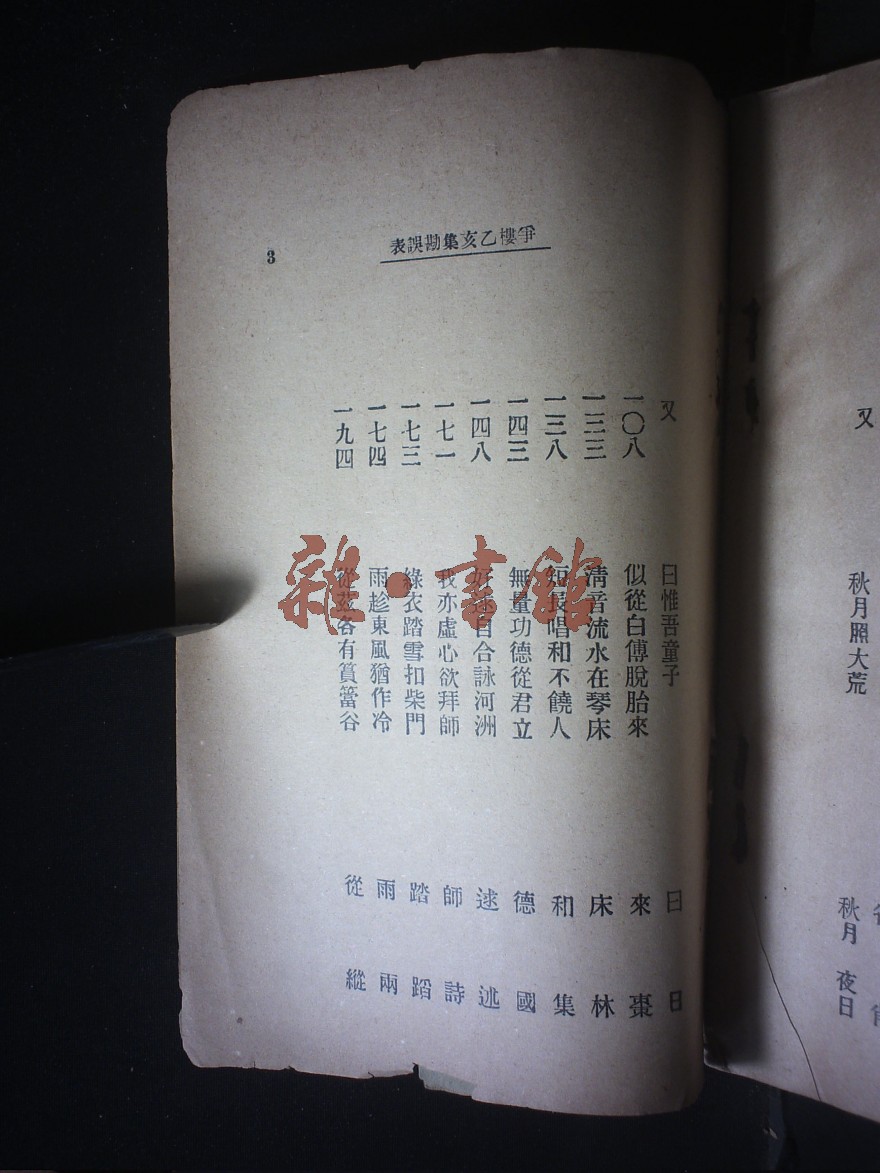 又 秋月照大荒 秋月 夜日
爭樓乙亥集勘誤表
3
又 曰惟吾童子 曰 日
一〇八 似從白傅脫胎來 來 棗
一三三 清音流水在琴床 床 林
一三八 短長唱和不饒人 和 集
一四三 無量功德從君立 德 國
一四八 好逑自合詠河洲 逑 述
一七一 我亦虛心欲拜師 師 詩
一七三 綠衣踏雪扣柴門 踏 蹈
一七四 雨趁東風猶作冷 雨 兩
一九四 從茲各有篔簹谷 從 縱
雜·書館